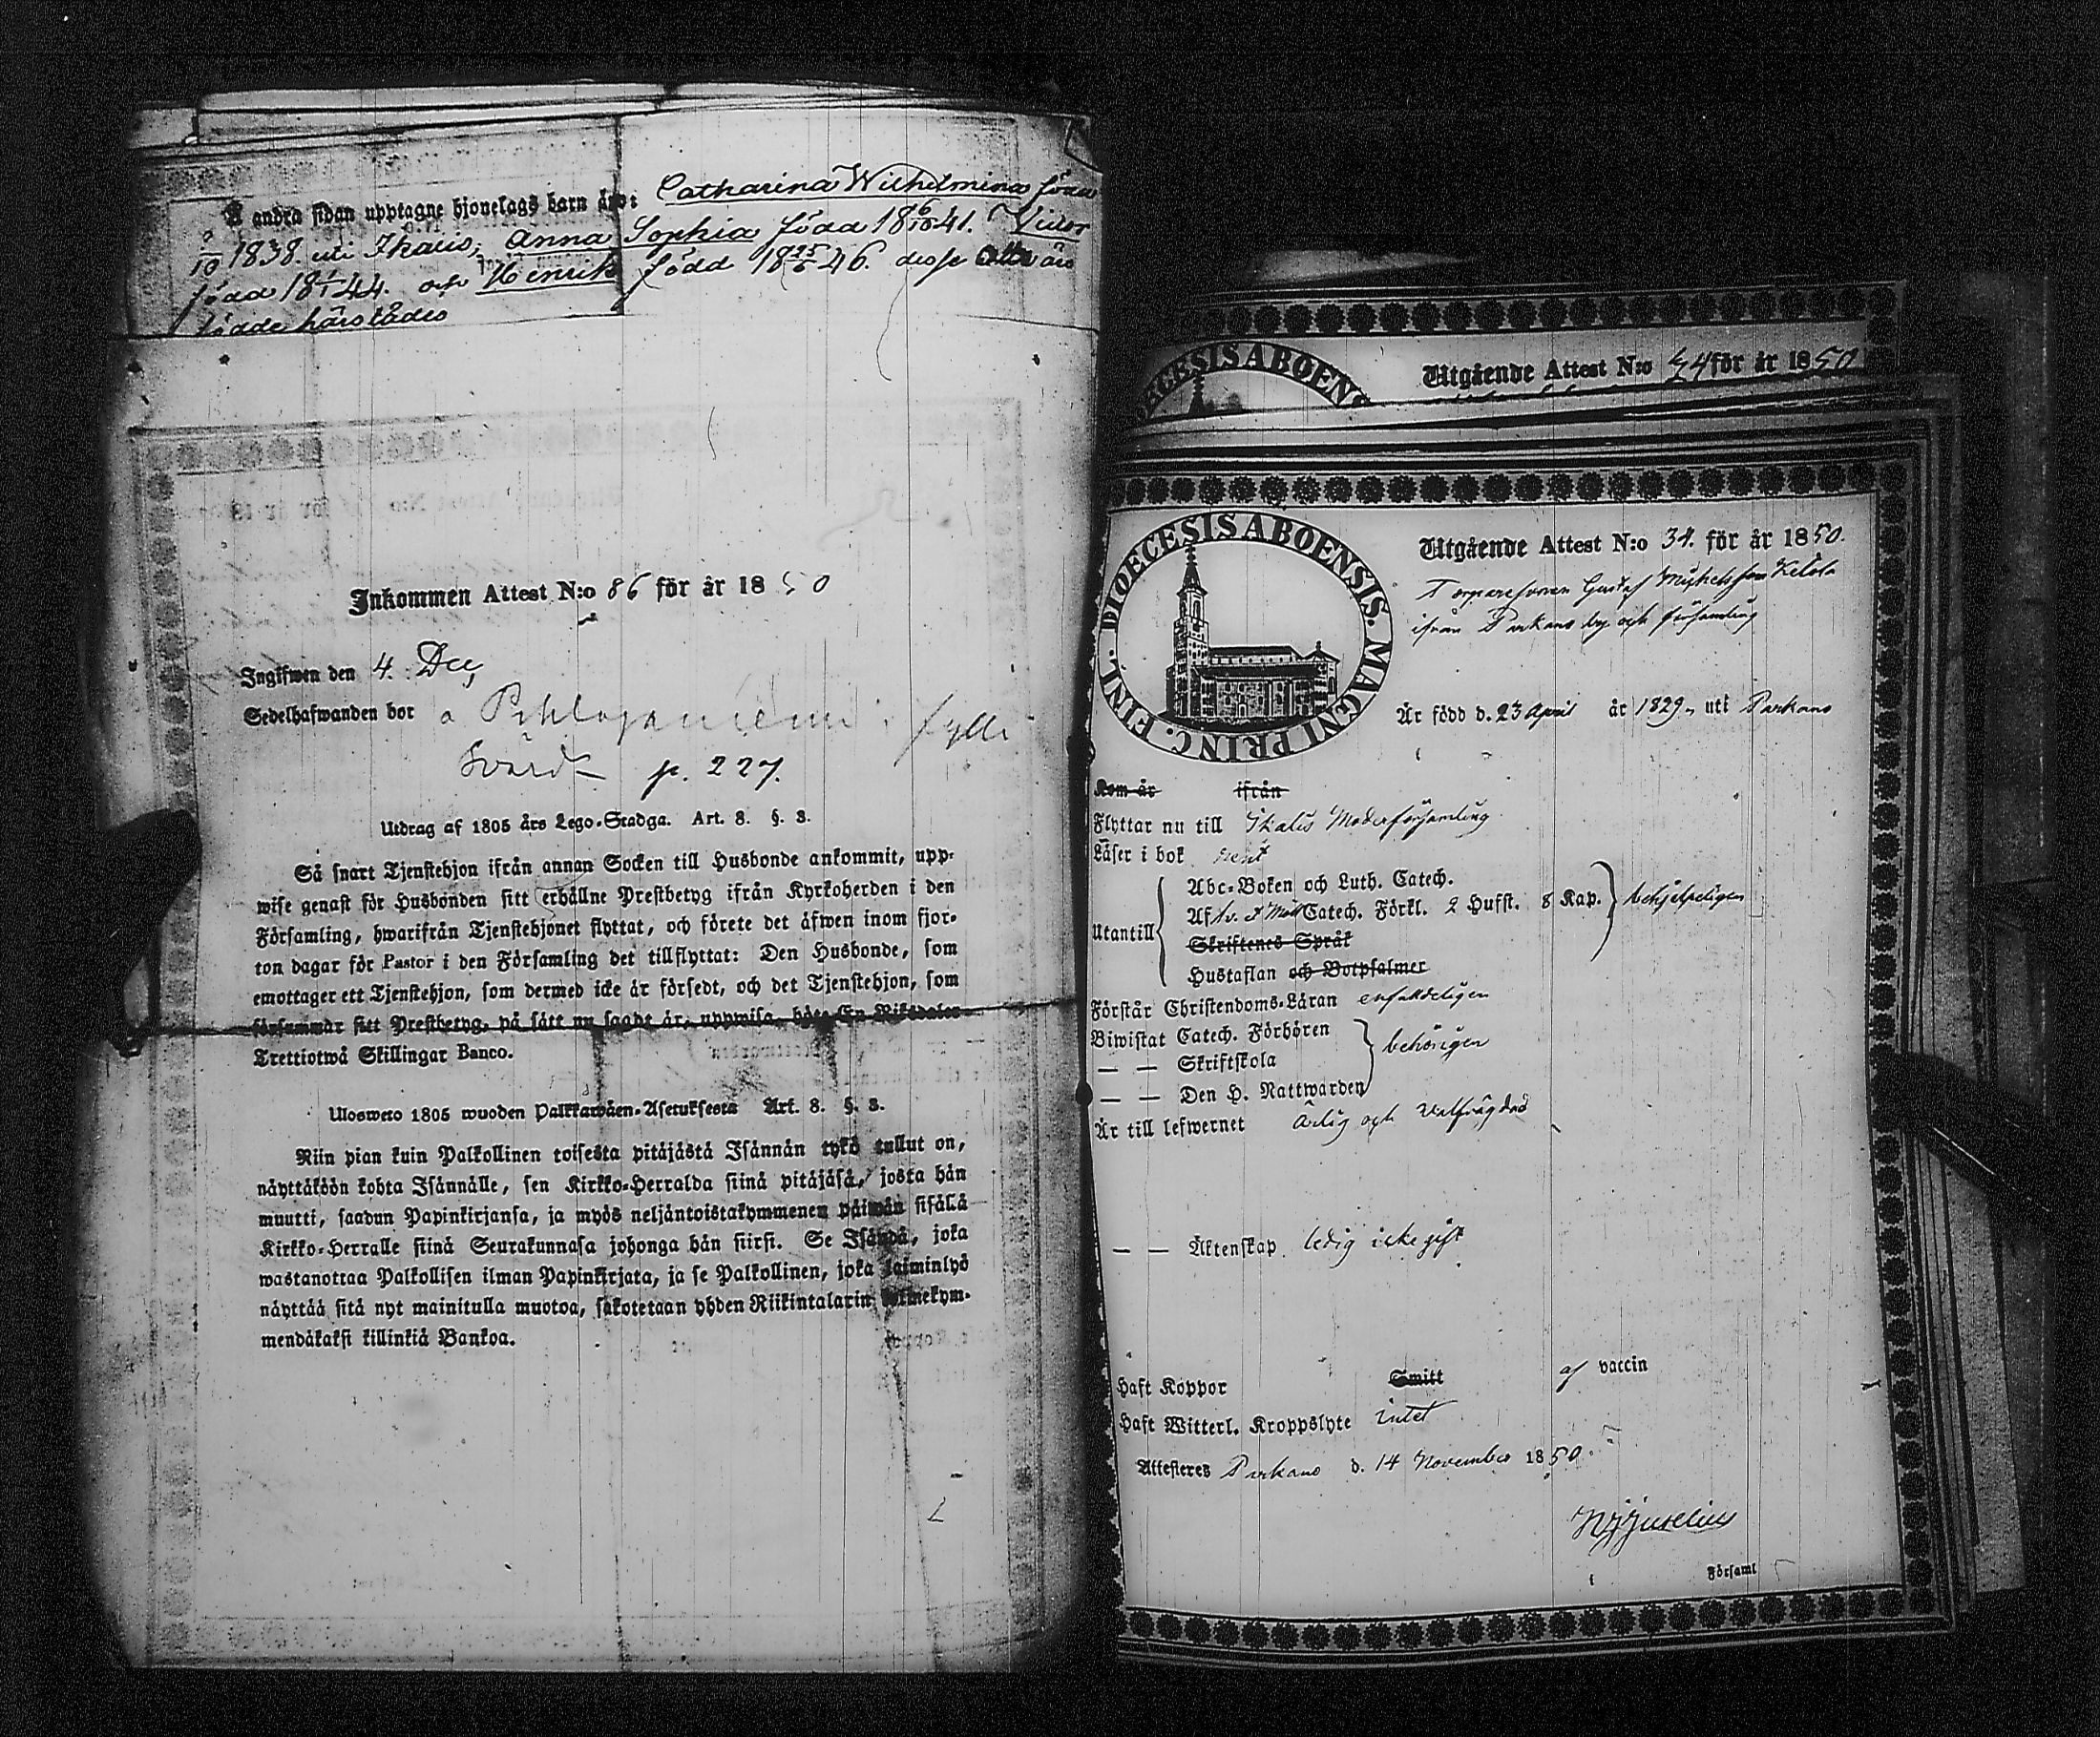 Å andra sidan upptagne hjonelags barn äro: Catharina Wilhelmina född
9/10 1838. uti Ikalis, Anna Sophia född 18 6/10 41. Victor
född 18 1/1 44. och Henrik född 18 25/6 46. desse äro
födde härstädes
Inkommen Attest N:o 86 för år 1850
Ingifwen den 4. Dec,
Sedelhafwanden bor
p. 227.
Utdrag af 1805 års Lego-Stadga. Art. 8. §. 3.
Så snart Tjenstehjon ifrån annan Socken till Husbonde ankommit, upp-
wise genast för Husbonden sitt erhållne Prestbetyg ifrån Kyrkoherden i den
Församling, hwarifrån Tjenstehjonet flyttat, och förete det äfwen inom fjor-
ton dagar för Pastor i den Församling det tillflyttat: Den Husbonde, som
emottager ett Tjenstehjon, som dermed icke är försedt, och det Tjenstehjon, som
försummar sitt Prestbetyg, på sätt nu sagdt är, uppwisa, böte En Riksdaler
Trettiotwå Skillingar Banco.
Ulosweto 1805 wuoden Palkkawäen-Asetuksesta Art. 8. §. 3.
Niin pian kuin Palkollinen toisesta pitäjästä Isännän tykö tullut on,
näyttäköön kohta Isännälle, sen Kirkko-Herralda siinä pitäjäsä, josta hän
muutti, saadun Papinkirjansa, ja myös neljäntoistakymmenen päiwän sisällä
Kirkko-Herralle siinä Seurakunnasa johonga hän siirsi. Se Isändä, joka
wastanottaa Palkollisen ilman Papinkirjata, ja se Palkollinen, joka laiminlyö
näyttää sitä nyt mainitulla muotoa, sakotetaan yhden Riikintalarin kolmekym-
mendäkaksi killinkiä Bankoa.
DIOECESIS ABOEN
Utgående Attest N:o 54 för år 1850
DIOECESIS ABOENSIS. MAGNI PRINC. FINL.
Utgående Attest N:o 34. för år 1850.
Torparesonen Gustaf Michelsson Ketola
ifrån Parkano by och församling
Är född d. 23 April år 1829, uti Parkano
Kom år ifrån
Flyttar nu till Ikalis Moderförsamling
Läser i bok rent
Utantill
Abc-Boken och Luth. Catech.
Af Catech. Förkl. 2 Hufst. 8 Kap. behjelpeligen
Skriftenes Språk
Hustaflan och Botpsalmer
Förstår Christendoms-Läran enfaldeligen
Biwistat Catech. Förhören
— — Skriftskola behörigen
— — Den H. Nattwarden
Är till lefwernet ärlig och välfrägdad
— — Äktenskap ledig icke gift
Haft Koppor Smitt af vaccin
Haft Witterl. Kroppslyte intet
Attesteres Parkano d. 14 November 1850.
Juselius
Församl